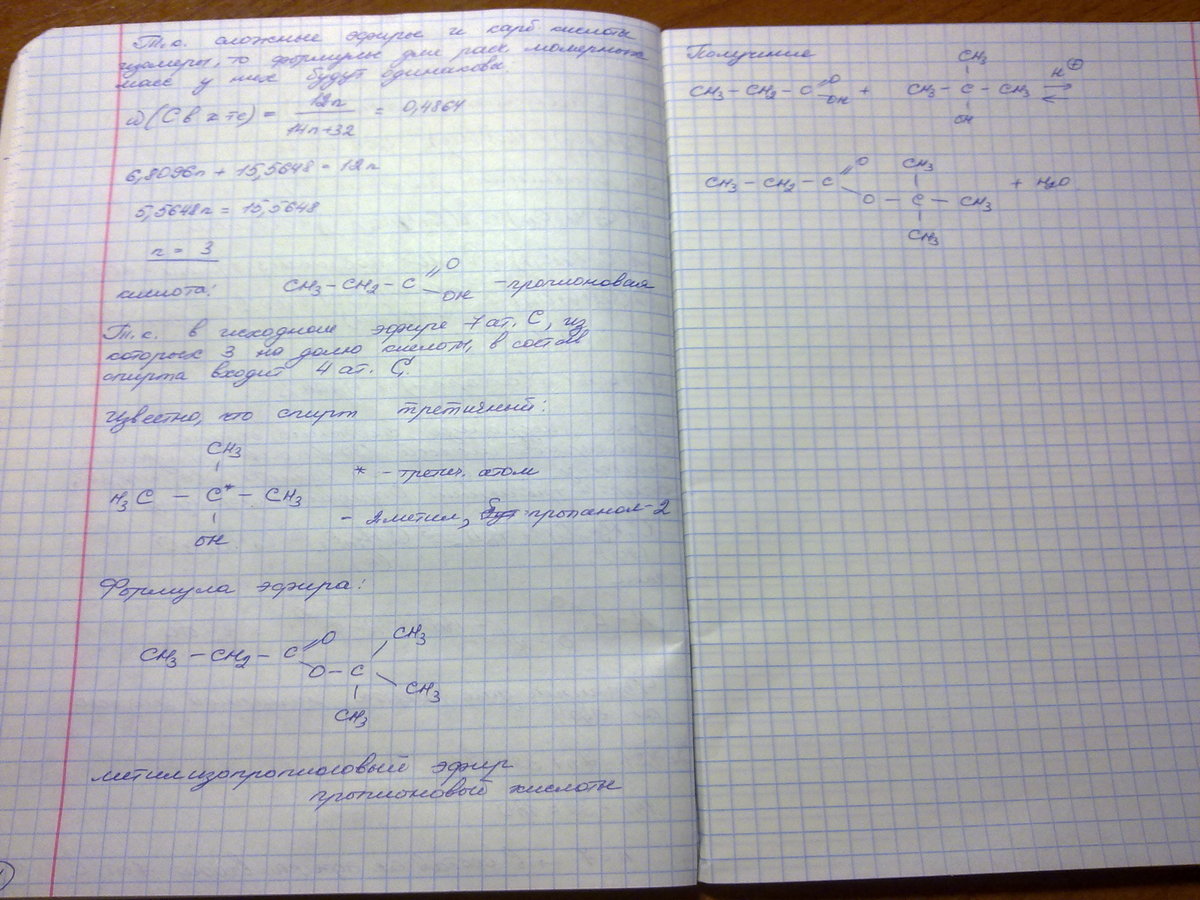 Т.к. сложные эфиры и карб кислоты
изомеры, то формулы для расч. молярных
масс у них будут одинаковы.
ω(C в к-те) = 12n / 14n+32 = 0,4864
6,8096n + 15,5648 = 12n
5,5648n = 15,5648
n = 3
кислота: CH3 – CH2 – C =O OH – пропионовая
Т.к. в исходном эфире 7 ат. C, из
которых 3 на долю кислоты, в состав
спирта входит 4 ат. C.
Известно, что спирт третичный:
CH3
H3C – C* – CH3
OH
* – третич. атом
– 2метил, пропанол-2
Формула эфира:
CH3 – CH2 – C =O CH3
O – C
CH3
CH3
метилизопропиловый эфир
пропионовый кислоты
Получение
CH3
CH3 – CH2 – C =O OH + CH3 – C – CH3 H+ ⇌
OH
CH3 – CH2 – C =O CH3
O – C – CH3 + H2O
CH3